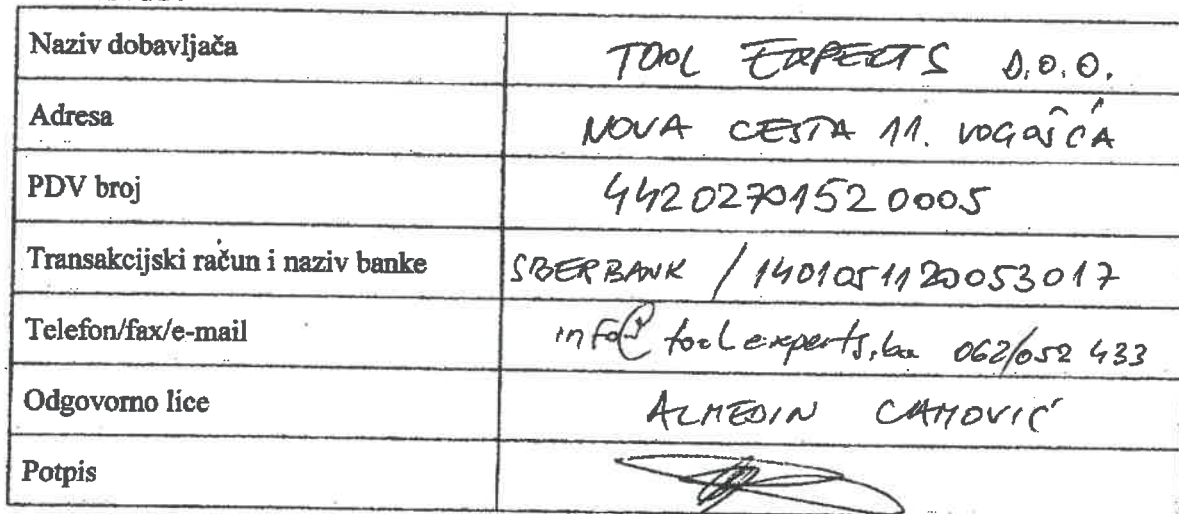 Naziv dobavljača TOOL EXPERTS D.O.O.
Adresa NOVA CESTA 11. VOGOŠĆA
PDV broj 4420270152 0005
Transakcijski račun i naziv banke SBERBANK / 1401051120053017
Telefon/fax/e-mail info@toolexperts.ba 062/052 433
Odgovorno lice ALMEDIN CAMOVIĆ
Potpis